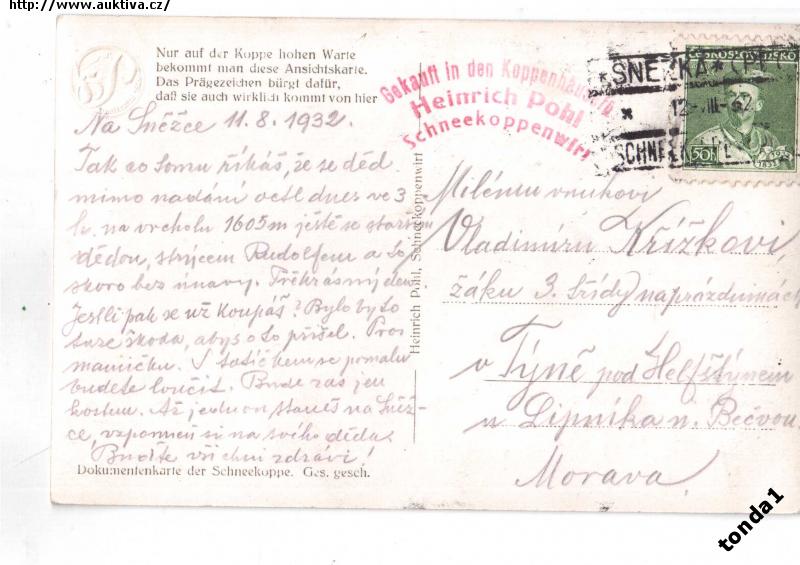 http://www.auktiva.cz/
Nur auf der Koppe hohen Warte
bekommt man diese Ansichtskarte.
Das Prägezeichen bürgt dafür,
daß sie auch wirklich kommt von hier
Na Sněžce 11.8.1932.
Tak co tomu říkáš, že se děd
mimo nadání octl dnes ve 3
h. na vrcholu 1605m ještě se starším
dědou, strýcem Rudolfem a to
skoro bez únavy. Překrásný den
Jestli pak se už koupáš? Bylo by to
tuze škoda, abys o to přišel. Pros
mamičku. S tatíčkem se pomalu
budete loučit. Bude zas jen
hostem. Až jednou staneš na Sněž-
ce, vzpomeň si na svého děda.
Buďte všichni zdrávi!
Dokumentenkarte der Schneekoppe. Ges. gesch.
Heinrich Pohl, Schneekoppenwirt
Gekauft in den Koppenhäusern
Heinrich Pohl
Schneekoppenwirt
ČESKOSLOVENSKO
50h
SNĚŽKA
Milému vnukovi
Vladimíru Křížkovi
žáku 3. třídy na prázdninách
v Týně pod Helfštýnem
u Lipníka n. Bečvou
Morava
tonda1